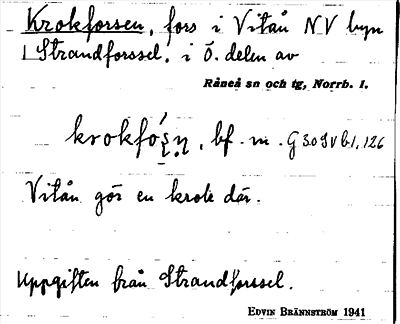 Krokforsen, fors i Vitån NV byn
Strandforssel, i Ö. delen av
Råneå sn och tg, Norrb. l.
krokfo̗ṣṇ, bf. m.
Vitån gör en krok där.
Uppgiften från Strandforssel.
EDVIN BRÄNNSTRÖM 1941